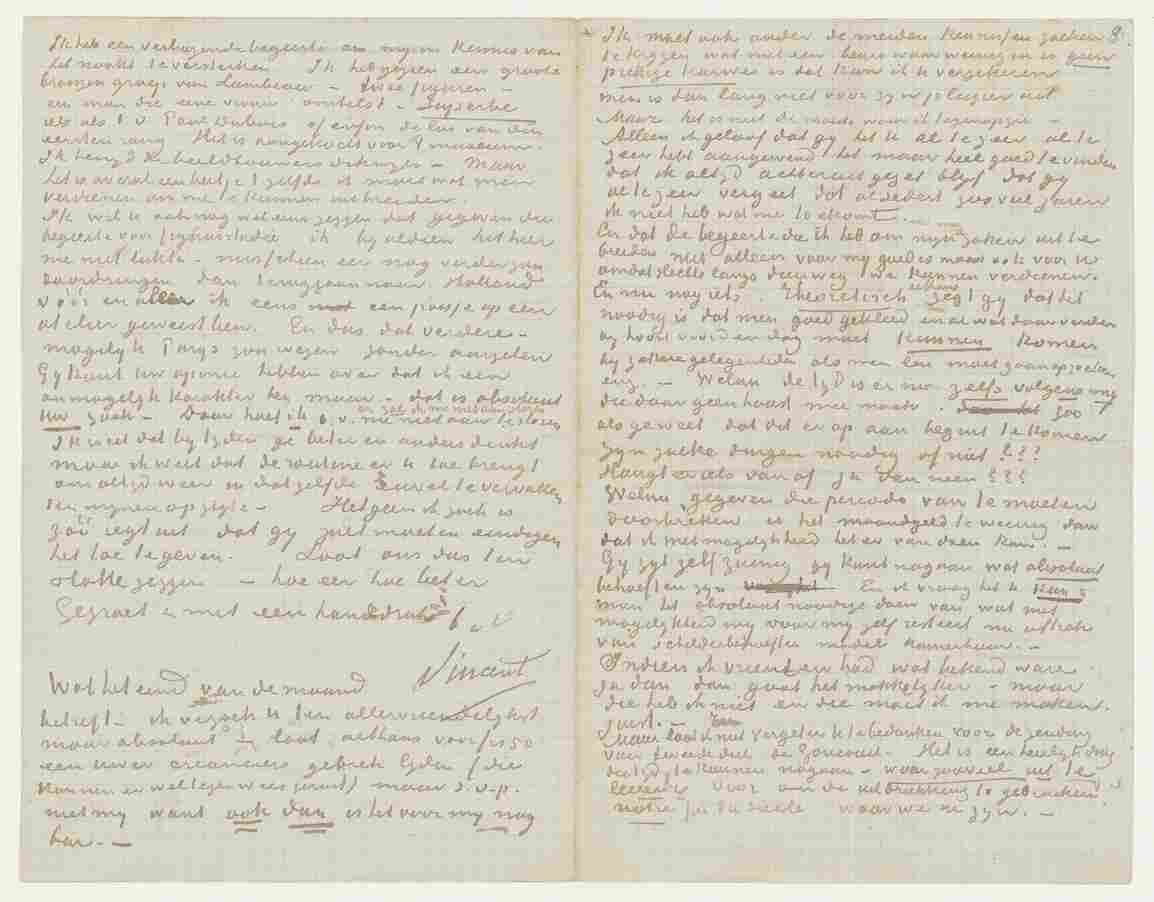 Ik heb een verbazende begeerte om myne kennis van
het naakt te versterken Ik heb gezien een groote
bronzen groep van Lambeau – twee figuren –
en man die eene vrouw omhelst – superbe
iets als b.v. Paul Dubois of enfin de lui van den
eersten rang Het is aangekocht voor 't museum.
Ik benyd de beeldhouwers – Maar
het is overal een beetje 't zelfde ik moet wat meer
verdienen om me te kunnen uitbreiden.
Ik wil u ook nog wel eens zeggen dat gegeven die
begeerte voor figuurstudie ik byaldien het hier
me niet lukte – misschien eer nog verder zou
doordringen dan teruggaan naar Holland
voor en aleer ik eens een poosje op een
atelier geweest ben. En dus dat verdere –
mogelyk Parys zou wezen zonder aarzelen
Gy kunt uw opinie hebben over dat ik een
onmogelyk karakter ben maar – dat is absoluut
uw zaak. – Daar hoef ik b.v. me niet aan te storen
en zal ik me niet aan storen
Ik weet dat by tyden ge beter en anders denkt
maar ik weet dat de routine er u toe brengt
om altyd weer in dat zelfde euvel te vervallen
ten mynen opzigte – Hetgeen ik zoek is
zóó regt uit dat gy zult moeten eindigen
het toe te geven. Laat ons dus ten
slotte zeggen – hoe eer hoe beter
Gegroet en met een handdruk
t. à. v.
Vincent
Wat het eind van de maand
betreft – ik verzoek U ten allervriendelykst
maar absoluut – laat althans voor frs 50
een uwer creanciers gebrek lyden (die
kunnen er wel tegen wees gerust) maar s.v.p.
niet my want ook dan is het voor my nog
bar. –
8.
Ik moet ook onder de meiden kennissen zoeken
te krygen wat met een beurs waar weinig in is geen
prettige karwei is dat kan ik u verzekeren
men is dan lang niet voor zyn plezier uit.
Maar het is met de moeite waar ik tegenopzie –
Alleen ik geloof dat gy het u al te zeer al te
zeer hebt aangewend het maar heel goed te vinden
dat ik altyd achteruit gezet blyf dat gy
al te zeer vergeet dat al sedert zoo veel jaren
ik niet heb wat me toekomt. –
En dat de begeerte die ik heb om myn zaken uit te
breiden niet alleen voor my goed is maar ook voor U
omdat slechts langs dien weg we kunnen verdienen.
En nu nog iets. Theoretisch althans zegt gy dat dit
noodig is dat men goed gekleed en al wat daar verder
by hoort voor den dag moet kunnen komen
by zekere gelegenheden als men lui moet gaan opzoeken
enz. – Welnu de tyd is er nu zelfs volgens my
die daar geen haast mee maak. – zoo
als geweest dat dit er op aan begint te komen
Zyn zulke dingen noodig of niet ???
Hangt er iets van af ja dan neen ???
Welnu gegeven die periode van te moeten
doorbreken is het maandgeld te weinig dan
dat ik met mogelykheid het er van doen kan. –
Gy zyt zelf zuinig gy kunt nagaan wat absoluut
behoeften zyn En ik vraag het U kan
men het absoluut noodige doen van wat met
mogelykheid my voor my zelf resteert na aftrek
van schilderbehoeften model kamerhuur. –
Indien ik vrienden had wat bekend ware
ja dan dan gaat het makkelyker – maar
die heb ik niet en die moet ik me maken.
juist. –
Maar laat ik niet vergeten U te bedanken voor de zending
van tweede deel de Goncourt. Het is een heerlyk ding
die tyd te kunnen nagaan – waar zooveel uit te
leeren is voor om de uitdrukking te gebruiken
notre fin du siècle waar we in zyn. –